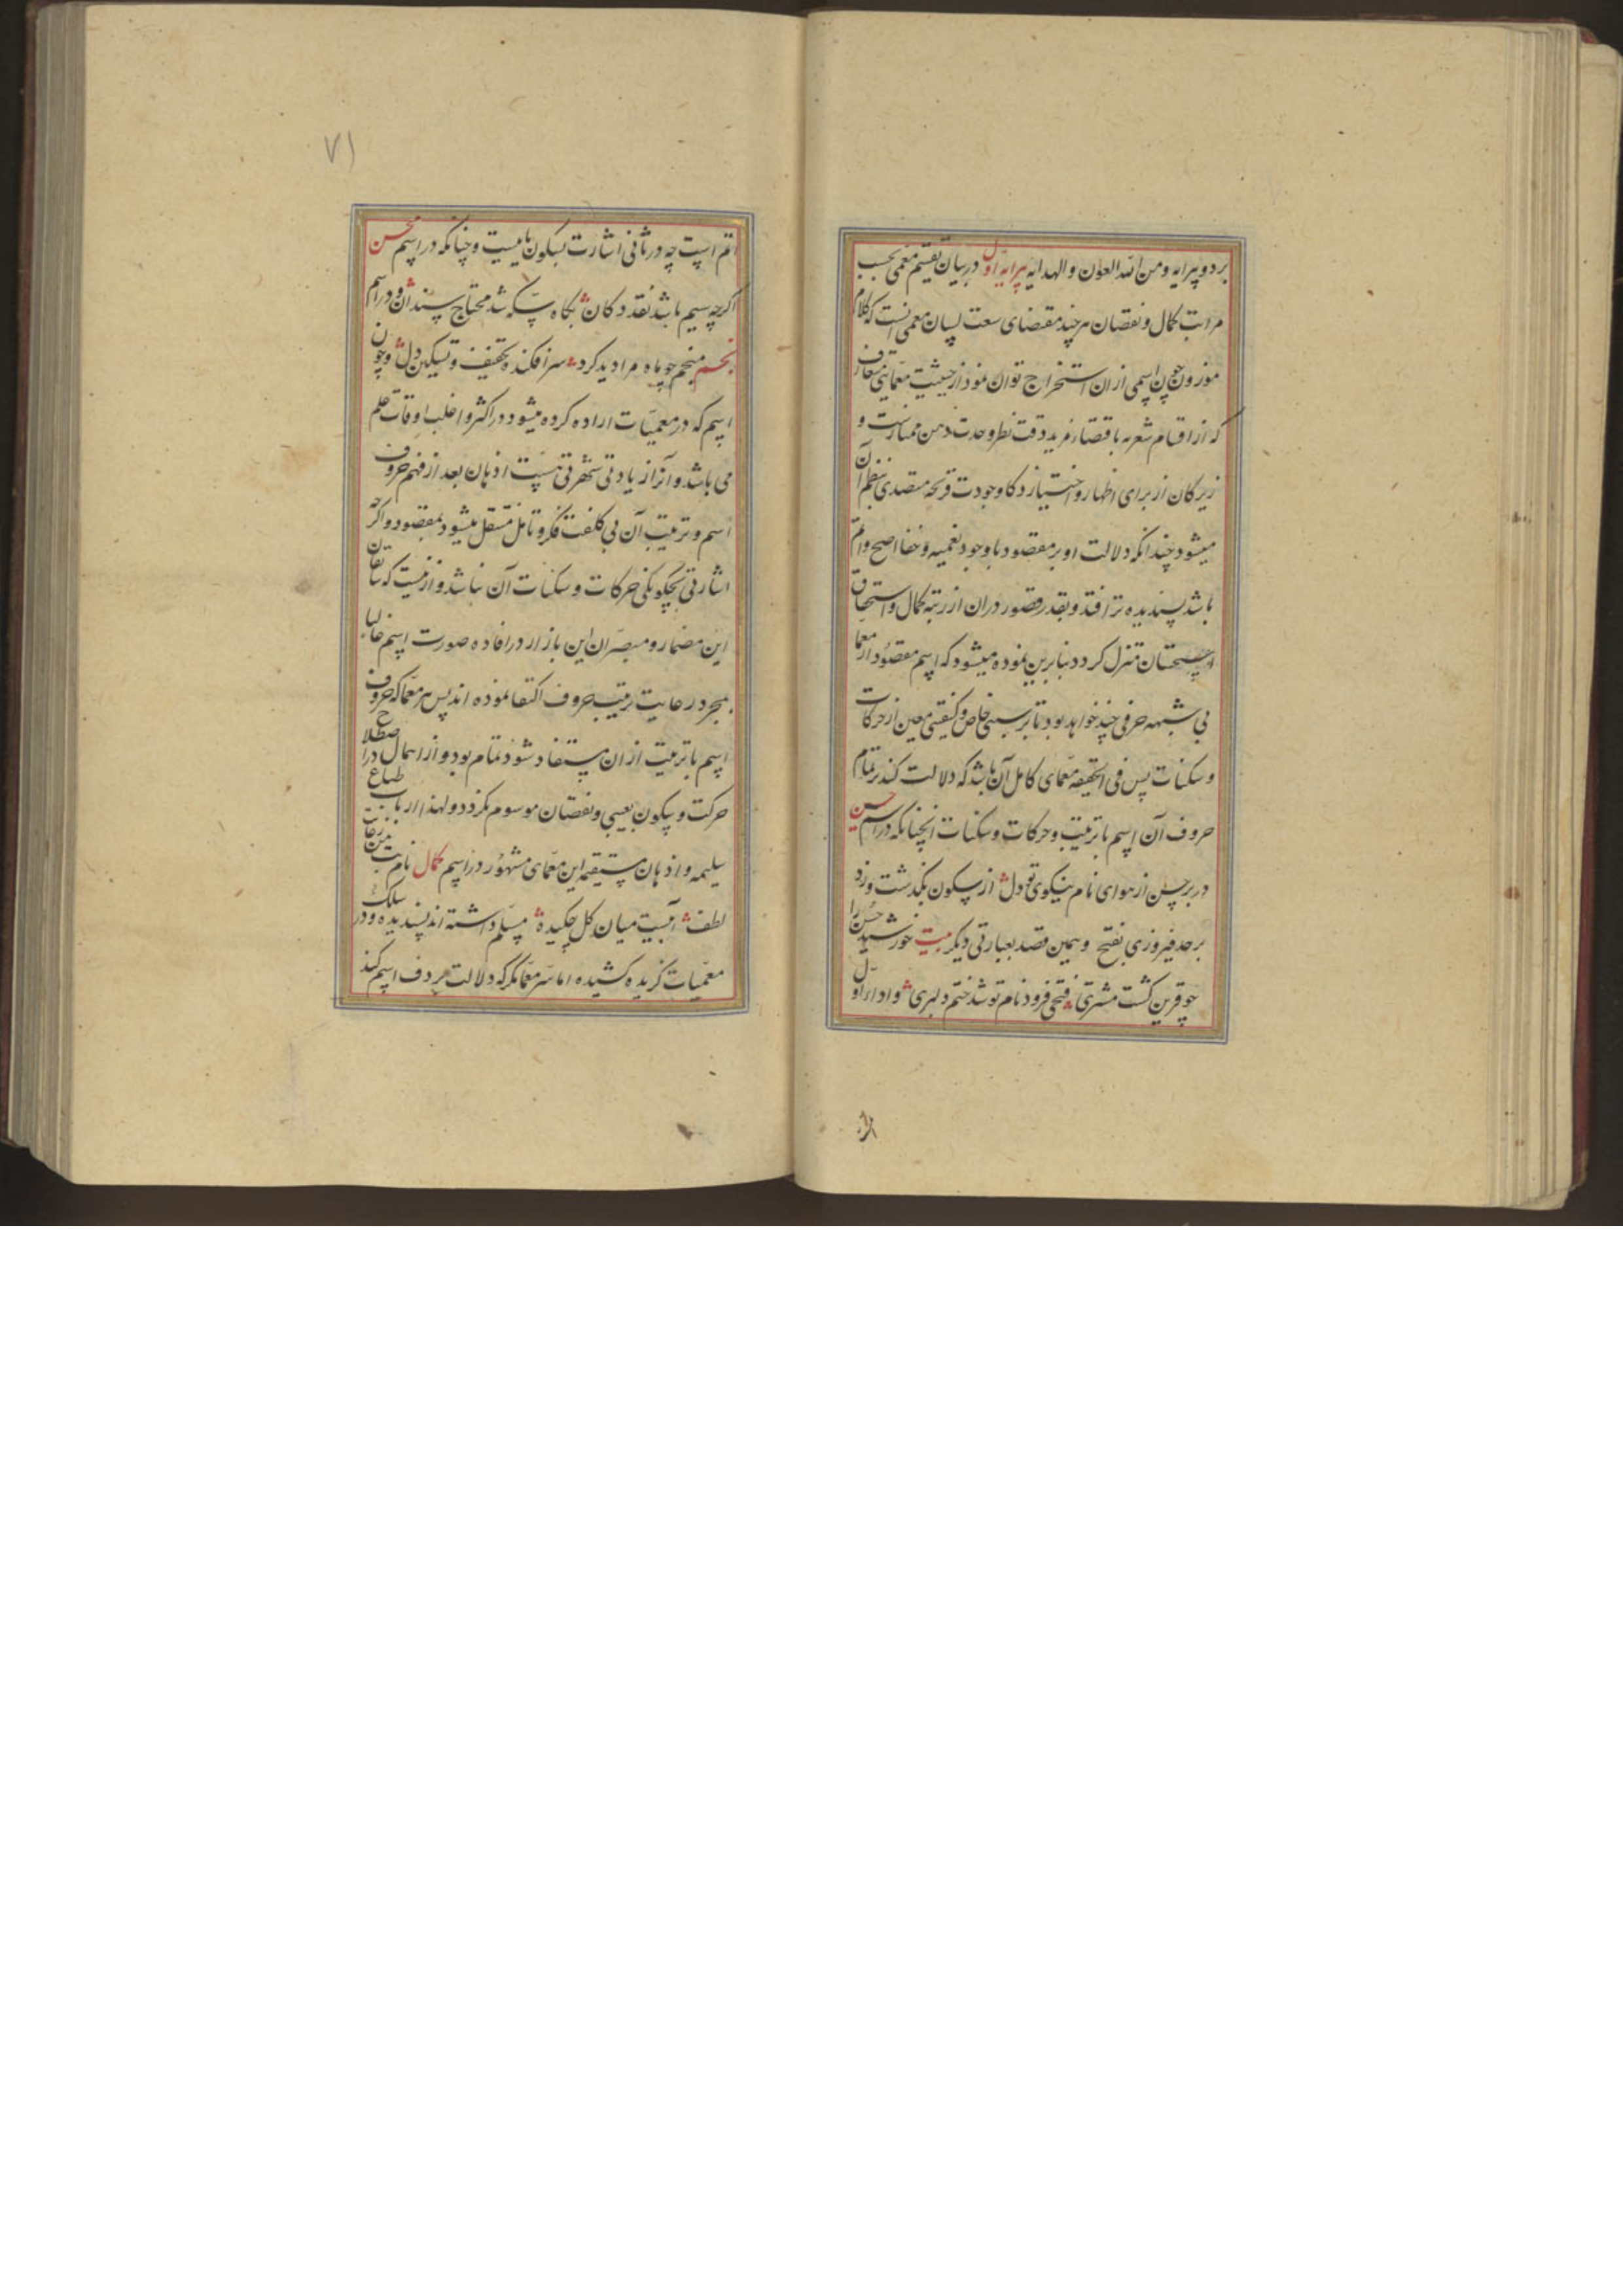 بر دو پیرایه و من الله العون و الهدایه پیرایه اول در بیان تقسیم معمی بحسب
مراتب کمال و نقصان هر چند مقتضای سعت لسان معمی آنست که کلام
موزون چون اسمی از ان استخراج توان نمود از حیثیت معمایی متعارف
که از اقسام شعر به اقتضاء مزید دقت نظر و حدت ذهن ممتازست و
زیرکان از برای اظهار و اختیار ذکا و جودت قریحه متصدی نظم آن
میشود چندانکه دلالت او بر مقصود با وجود تعمیه و خفا اصح و اتم
باشد پسندیده تر افتد و بقدر قصور در ان از رتبه کمال و استحقاق
استحسان تنزل کردد بنابرین نموده میشود که اسم مقصود از معما
بی شبهه حرفی چند خواهد بود بترتیبی خاص و کیفیتی معین از حرکات
و سکنات پس فی الحقیقه معمای کامل آن باشد که دلالت کند بر تمام
حروف آن اسم با ترتیب و حرکات و سکنات آنچنانکه در اسم حسین
در برجس از هوای نام نیکوی تو دل از سکون بگذشت و زد
بر حد فیروزی بفتح و همین قصد بعبارتی دیکر بیت خورشید حسن را
چو قرین کشت مشتری فتحی فزود نام تو شد ختم دلبری و اداء اول
اتم است چه در ثانی اشارت بسکون یا نیست و چنانکه در اسم محسن
اکرچه سیم باشد نقد دکان بکاه سکه شد محتاج سندان و در اسم
نجم منجم چو ماه مرا دید کرد سر افکنده تخفیف و تسکین دل و چون
اسم که در معمیات اراده کرده میشود در اکثر و اغلب اوقات علم
می باشد و آنرا زیادتی شهرتی هست اذهان بعد از فهم حروف
اسم و ترتیب آن بی کلفت فکر و تامل منتقل میشود بمقصود و اکر
اشارتی بچکونکی حرکات و سکنات آن نباشد و ازینست که سابقان
این مضمار و مبصران این بازار در افاده صورت اسم غالبا
بمجرد رعایت ترتیب حروف اکتفا نموده اند پس هر معما که حروف
اسم با ترتیب از ان مستفاد شود تمام بود و از اهمال در اصطلاح
حرکت و سکون بعیبی و نقصان موسوم نکردد و لهذا ارباب طباع
سلیمه و اذهان مستقیمه این معمای مشهور در اسم کمال نام بت من ز غایت
لطف آبیست میان کل چکیده مسلم داشته اند و پسندیده و در سلک
معمیات کزیده کشیده اما هر معما که دلالت بر حروف اسم کند
۷۱
اتم